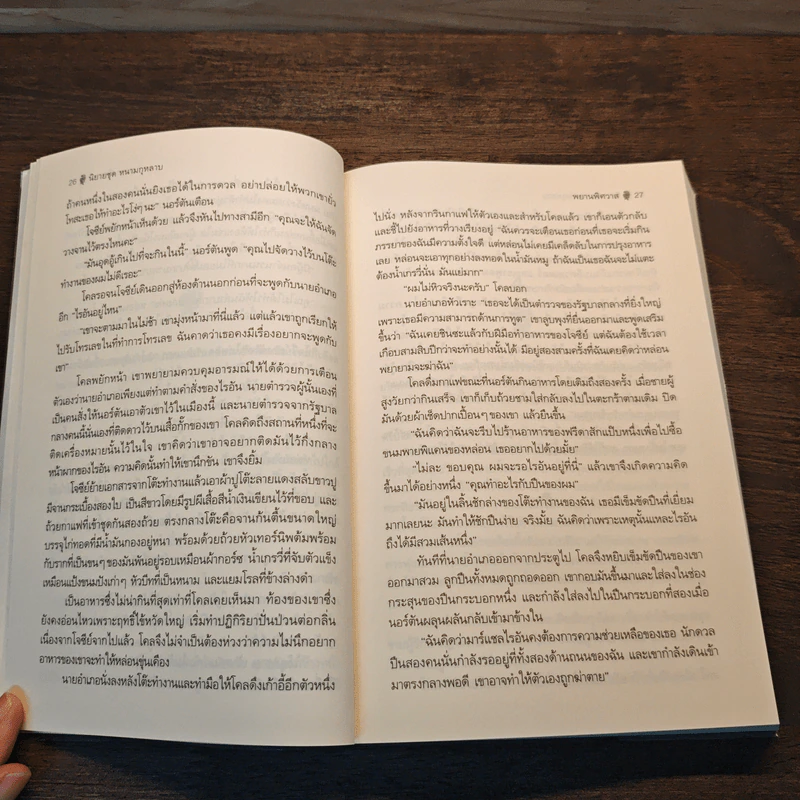 26 นิยายชุด หนามกุหลาบ
ถ้าคนหนึ่งในสองคนนั่นยิงเธอได้ในการดวล อย่าปล่อยให้พวกเขายั่ว
โทสะเธอให้ทำอะไรโง่ๆ นะ” นอร์ตันเตือน
โจซีย์พยักหน้าเห็นด้วย แล้วจึงหันไปทางสามีอีก “คุณจะให้ฉันจัด
วางจานไว้ตรงไหนคะ”
“มันอุดอู้เกินไปที่จะกินในนี้” นอร์ตันพูด “คุณไปจัดวางไว้บนโต๊ะ
ทำงานของผมไม่ดีเรอะ”
โคลรอจนโจซีย์เดินออกสู่ห้องด้านนอกก่อนที่จะพูดกับนายอำเภอ
อีก “ไรอันอยู่ไหน”
“เขาจะตามมาในไม่ช้า เขามุ่งหน้ามาที่นี่แล้ว แต่แล้วเขาถูกเรียกให้
ไปรับโทรเลขในที่ทำการโทรเลข ฉันคาดว่าเธอคงมีเรื่องอยากจะพูดกับ
เขา”
โคลพยักหน้า เขาพยายามควบคุมอารมณ์ให้ได้ด้วยการเตือน
ตัวเองว่านายอำเภอเพียงแต่ทำตามคำสั่งของไรอัน นายตำรวจผู้นั้นเองที่
เป็นคนสั่งให้นอร์ตันเอาตัวเขาไว้ในเมืองนี้ และนายตำรวจจากรัฐบาล
กลางคนนี้นั่นเองที่ติดดาวไว้บนเสื้อกั๊กของเขา โคลคิดถึงสถานที่หนึ่งที่จะ
ติดเครื่องหมายนั่นไว้ในใจ เขาคิดว่าเขาอาจอยากติดมันไว้กึ่งกลาง
หน้าผากของไรอัน ความคิดนั้นทำให้เขานึกขัน เขาจึงยิ้ม
โจซีย์ย้ายเอกสารจากโต๊ะทำงานแล้วเอาผ้าปูโต๊ะลายแดงสลับขาวปู
มีจานกระเบื้องสองใบ เป็นสีขาวโดยมีรูปผีเสื้อสีน้ำเงินเขียนไว้ที่ขอบ และ
ถ้วยกาแฟที่เข้าชุดกันสองถ้วย ตรงกลางโต๊ะคือจานก้นตื้นขนาดใหญ่
บรรจุไก่ทอดที่มีน้ำมันกองอยู่หนา พร้อมด้วยถ้วยหัวเทอร์นิพต้มพร้อม
กับรากที่เป็นขนๆ ของมันพันอยู่รอบเหมือนผ้ากอร์ซ น้ำเกรวี่ที่จับตัวแข็ง
เหมือนแป้งขนมปังเก่าๆ หัวบีทที่เป็นหนาม และแยมโรลที่ข้างล่างดำ
เป็นอาหารซึ่งไม่น่ากินที่สุดเท่าที่โคลเคยเห็นมา ท้องของเขาซึ่ง
ยังคงอ่อนไหวเพราะฤทธิ์ไข้หวัดใหญ่ เริ่มทำปฏิกิริยาปั่นป่วนต่อกลิ่น
เนื่องจากโจซีย์จากไปแล้ว โคลจึงไม่จำเป็นต้องห่วงว่าความไม่นึกอยาก
อาหารของเขาจะทำให้หล่อนขุ่นเคือง
นายอำเภอนั่งลงหลังโต๊ะทำงานและทำมือให้โคลดึงเก้าอี้อีกตัวหนึ่ง
พยานพิศวาส 27
ไปนั่ง หลังจากรินกาแฟให้ตัวเองและสำหรับโคลแล้ว เขาก็เอนตัวกลับ
และชี้ไปยังอาหารที่วางเรียงอยู่ “ฉันควรจะเตือนเธอก่อนที่เธอจะเริ่มกิน
ภรรยาของฉันมีความตั้งใจดี แต่หล่อนไม่เคยมีเคล็ดลับในการปรุงอาหาร
เลย หล่อนจะเอาทุกอย่างลงทอดในน้ำมันหมู ถ้าฉันเป็นเธอฉันจะไม่แตะ
ต้องน้ำเกรวี่นั่น มันแย่มาก”
“ผมไม่หิวจริงนะครับ” โคลบอก
นายอำเภอหัวเราะ “เธอจะได้เป็นตำรวจของรัฐบาลกลางที่ยิ่งใหญ่
เพราะเธอมีความสามารถด้านการทูต” เขาลูบพุงที่ยื่นออกมาและพูดเสริม
ขึ้นว่า “ฉันเคยชินซะแล้วกับฝีมือทำอาหารของโจซีย์ แต่ฉันต้องใช้เวลา
เกือบสามสิบปีกว่าจะทำอย่างนั้นได้ มีอยู่สองสามครั้งที่ฉันเคยคิดว่าหล่อน
พยายามจะฆ่าฉัน”
โคลดื่มกาแฟขณะที่นอร์ตันกินอาหารโดยเติมถึงสองครั้ง เมื่อชายผู้
สูงวัยกว่ากินเสร็จ เขาก็เก็บถ้วยชามใส่กลับลงไปในตะกร้าตามเดิม ปิด
มันด้วยผ้าเช็ดปากเปื้อนๆ ของเขา แล้วยืนขึ้น
“ฉันคิดว่าฉันจะรีบไปร้านอาหารของฟรีดาสักแป๊บหนึ่งเพื่อไปซื้อ
ขนมพายพีแคนของหล่อน เธออยากไปด้วยมั้ย”
“ไม่ละ ขอบคุณ ผมจะรอไรอันอยู่ที่นี่” แล้วเขาจึงเกิดความคิด
ขึ้นมาได้อย่างหนึ่ง “คุณทำอะไรกับปืนของผม”
“มันอยู่ในลิ้นชักล่างของโต๊ะทำงานของฉัน เธอมีเข็มขัดปืนที่เยี่ยม
มากเลยนะ มันทำให้ชักปืนง่าย จริงมั้ย ฉันคิดว่าเพราะเหตุนั้นแหละไรอัน
ถึงได้มีสวมเส้นหนึ่ง”
ทันทีที่นายอำเภอออกจากประตูไป โคลจึงหยิบเข็มขัดปืนของเขา
ออกมาสวม ลูกปืนทั้งหมดถูกถอดออก เขากอบมันขึ้นมาและใส่ลงในช่อง
กระสุนของปืนกระบอกหนึ่ง และกำลังใส่ลงไปในปืนกระบอกที่สองเมื่อ
นอร์ตันผลุนผลันกลับเข้ามาข้างใน
“ฉันคิดว่ามาร์แชลไรอันคงต้องการความช่วยเหลือของเธอ นักดวล
ปืนสองคนนั่นกำลังรออยู่ที่ทั้งสองด้านถนนของฉัน และเขากำลังเดินเข้า
มาตรงกลางพอดี เขาอาจทำให้ตัวเองถูกฆ่าตาย”